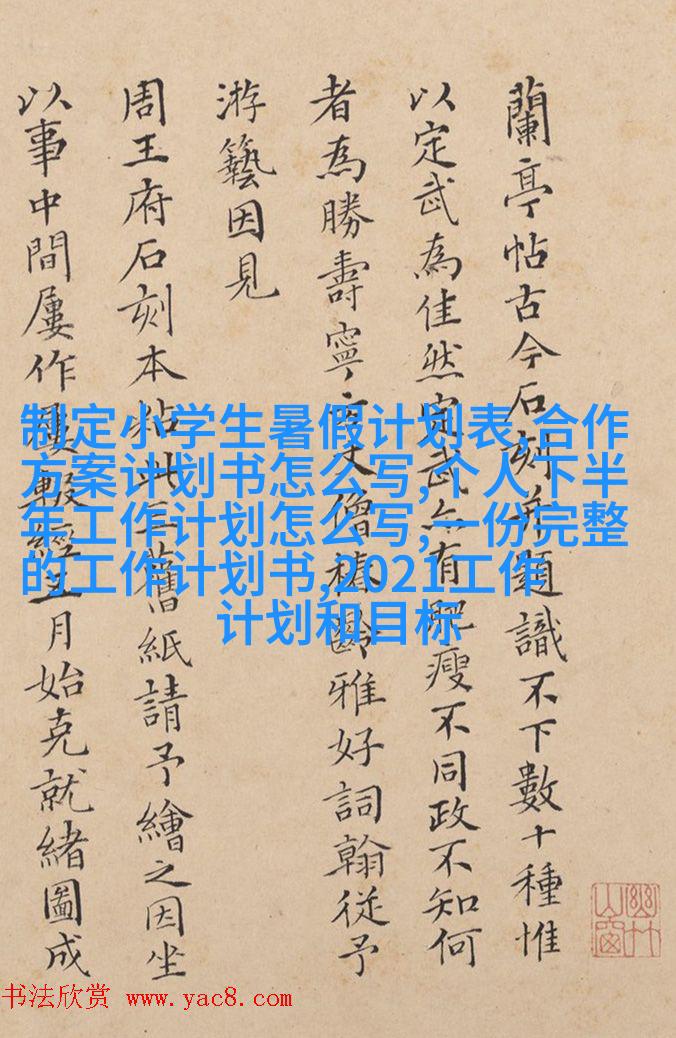 蘭亭帖古今石刻并題識不下數十種惟
以定武為佳然定武亦有肥瘦不同政不知何
者為勝壽寧僧椿齡雅好詞翰從予
游藝因見
周王府石刻本粘此三舊紙請予繪之因坐
以事中間屢作屢輟經五月始克就緒圖成
幽竹
山窗
制定小学生暑假计划表,合作
方案计划书怎么写,个人下半
年工作计划怎么写,一份完整
的工作计划书,2021工作
计划和目标
书法欣赏 www.yac8.com